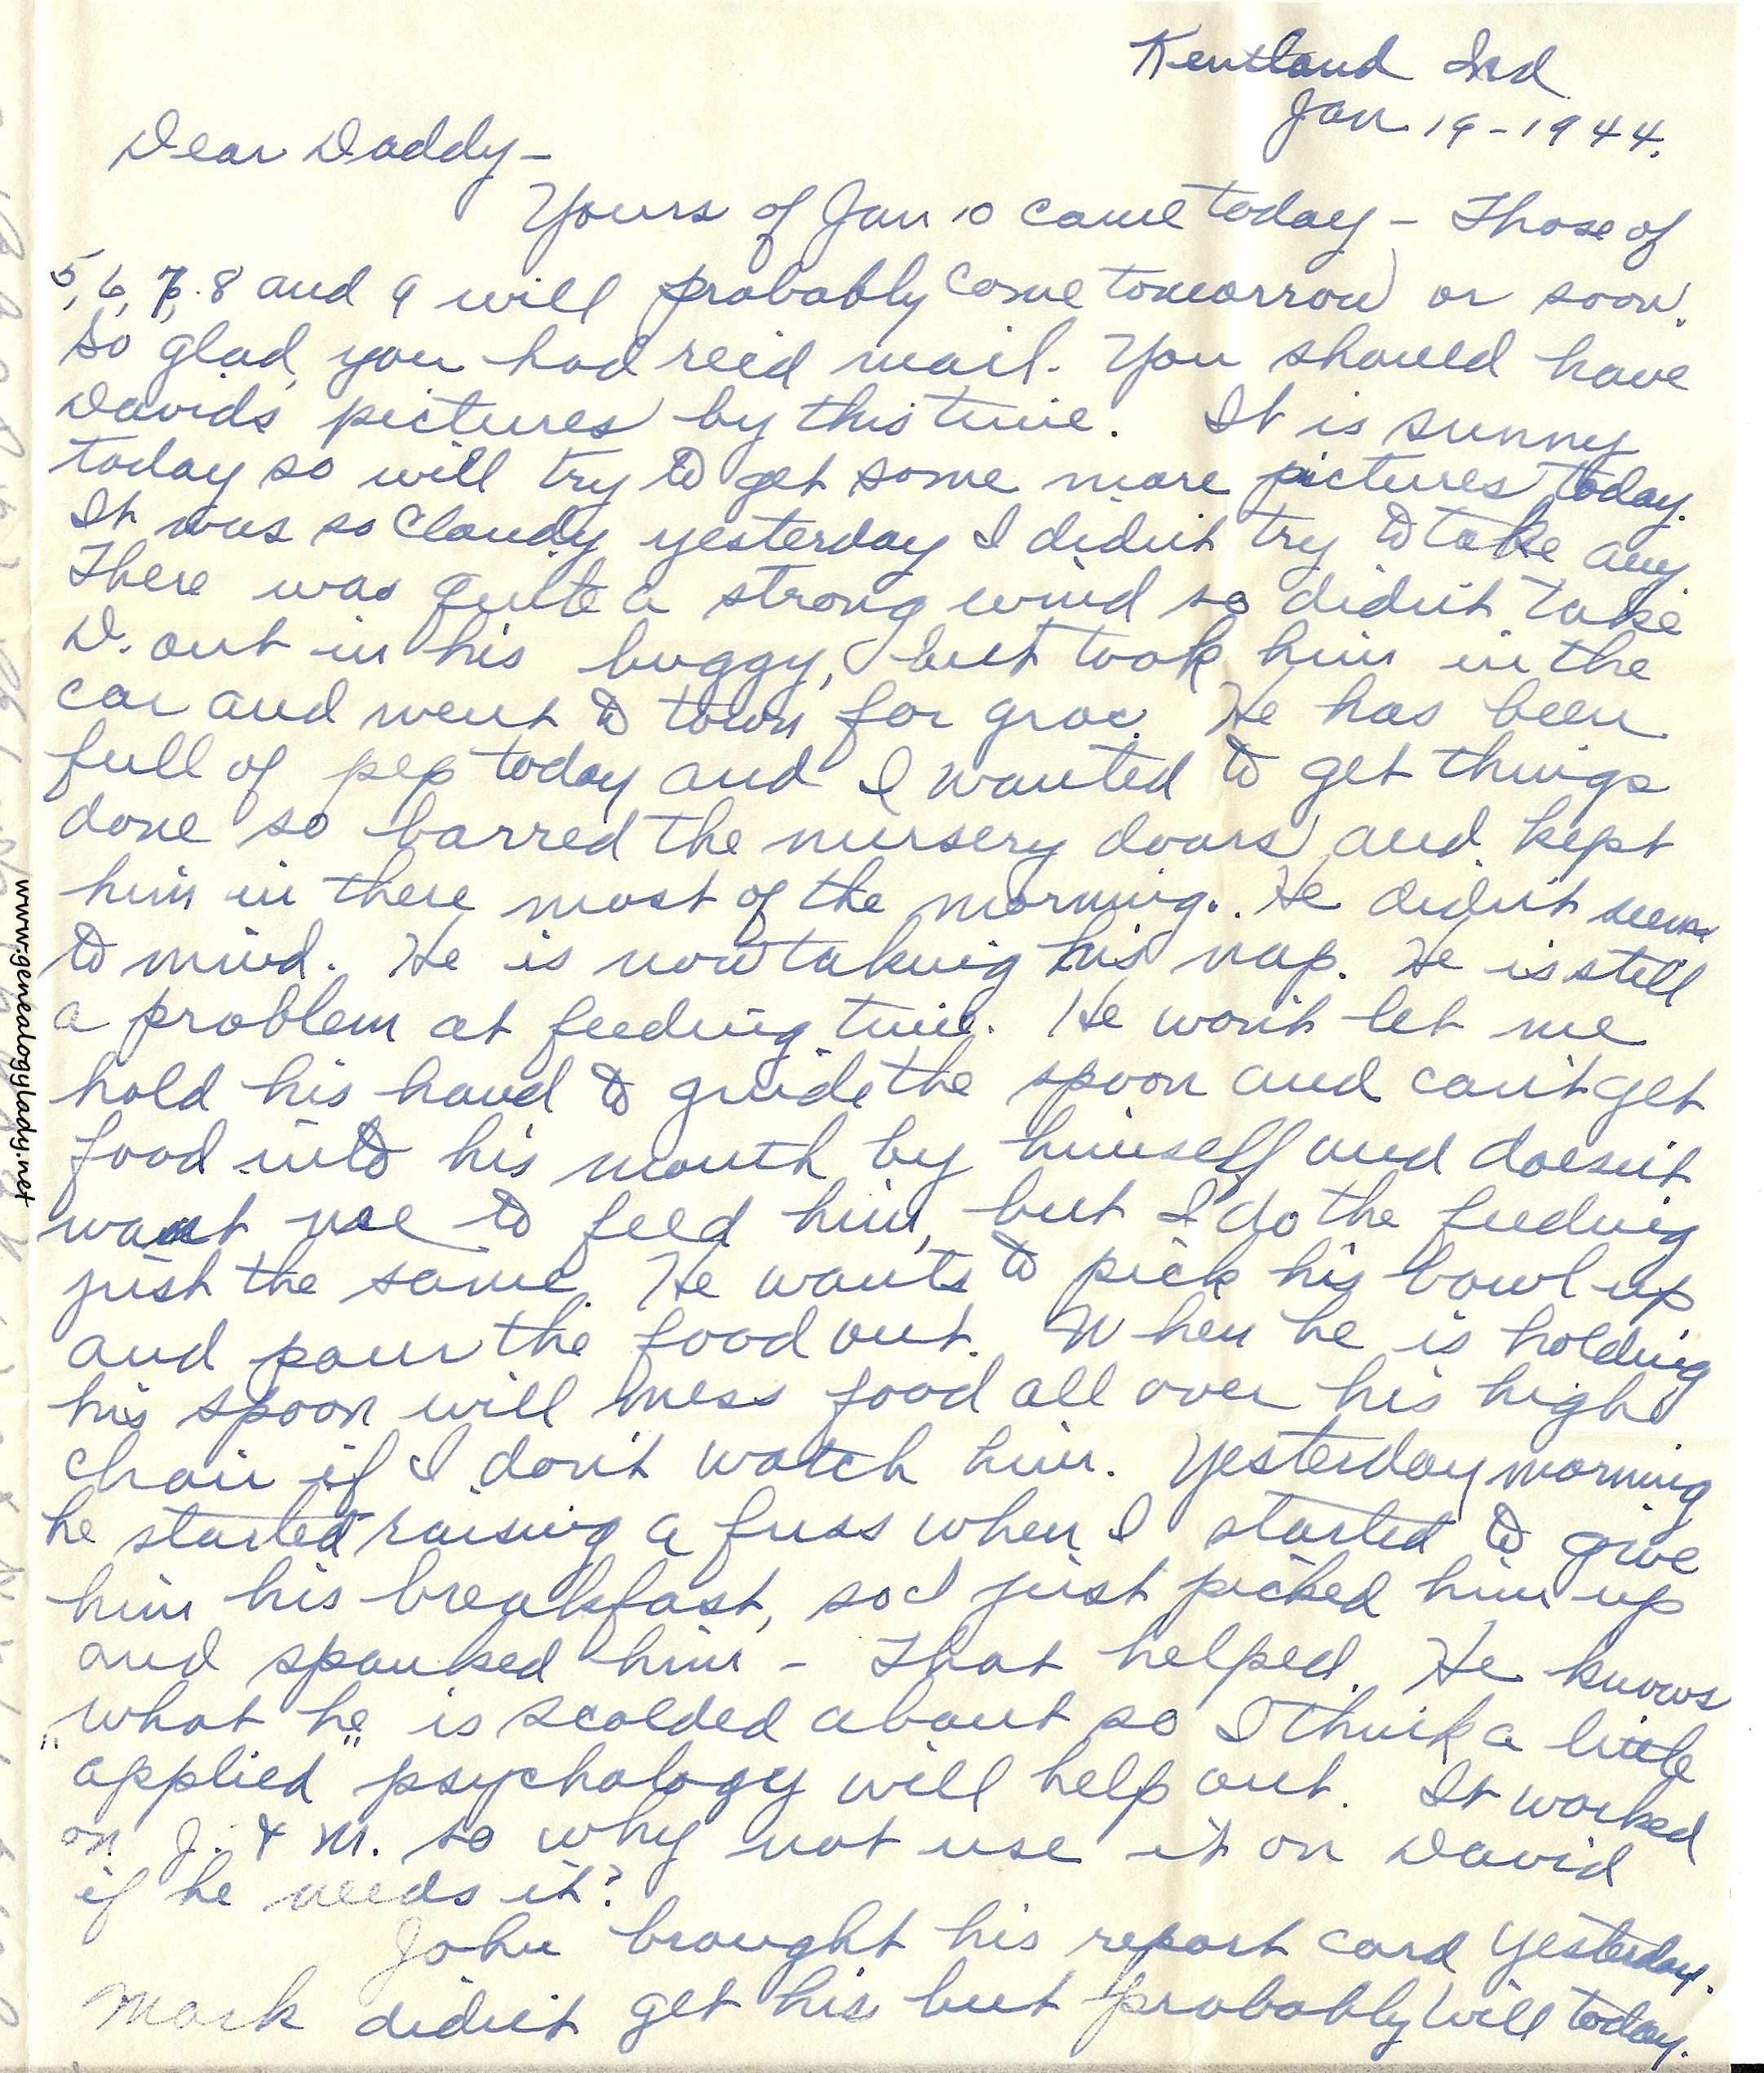 Kentland Ind
Jan 19-1944.
Dear Daddy-
Yours of Jan 10 came today - Those of
5, 6, 7, 8 and 9 will probably come tomorrow or soon.
So glad you had rec'd mail. You should have
Davids pictures by this time. It is sunny
today so will try to get some more pictures today.
It was so cloudy yesterday I didn't try to take any.
There was quite a strong wind so didn't take
D. out in his buggy, but took him in the
car and went to town for groc. He has been
full of pep today and I wanted to get things
done so barred the nursery doors and kept
him in there most of the morning. He didn't seem
to mind. He is now taking his nap. He is still
a problem at feeding time. He won't let me
hold his hand to guide the spoon and can't get
food into his mouth by himself and doesn't
want me to feed him, but I do the feeding
just the same. He wants to pick his bowl up
and pour the food out. When he is holding
his spoon will mess food all over his high
chair if I don't watch him. Yesterday morning
he started raising a fuss when I started to give
him his breakfast, so I just picked him up
and spanked him - That helped. He knows
what he is scolded about so I think a little
"applied psychology" will help out. It worked
on J. & M. so why not use it on David
if he needs it?
John brought his report card yesterday.
Mark didn't get his but probably will today.
www.genealogylady.net